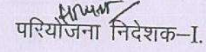 परियोजना निदेशक–I.